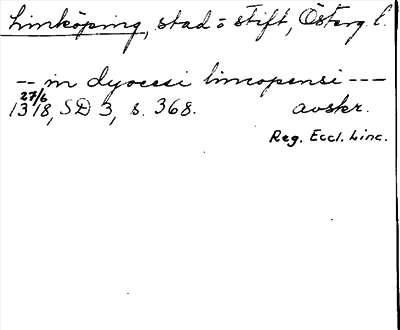 Linköping, stad o stift, Österg. l.
-- in dyocesi lincopensi ---
27/6
1318, SD 3, s. 368. avskr.
Reg. Eccl. Linc.